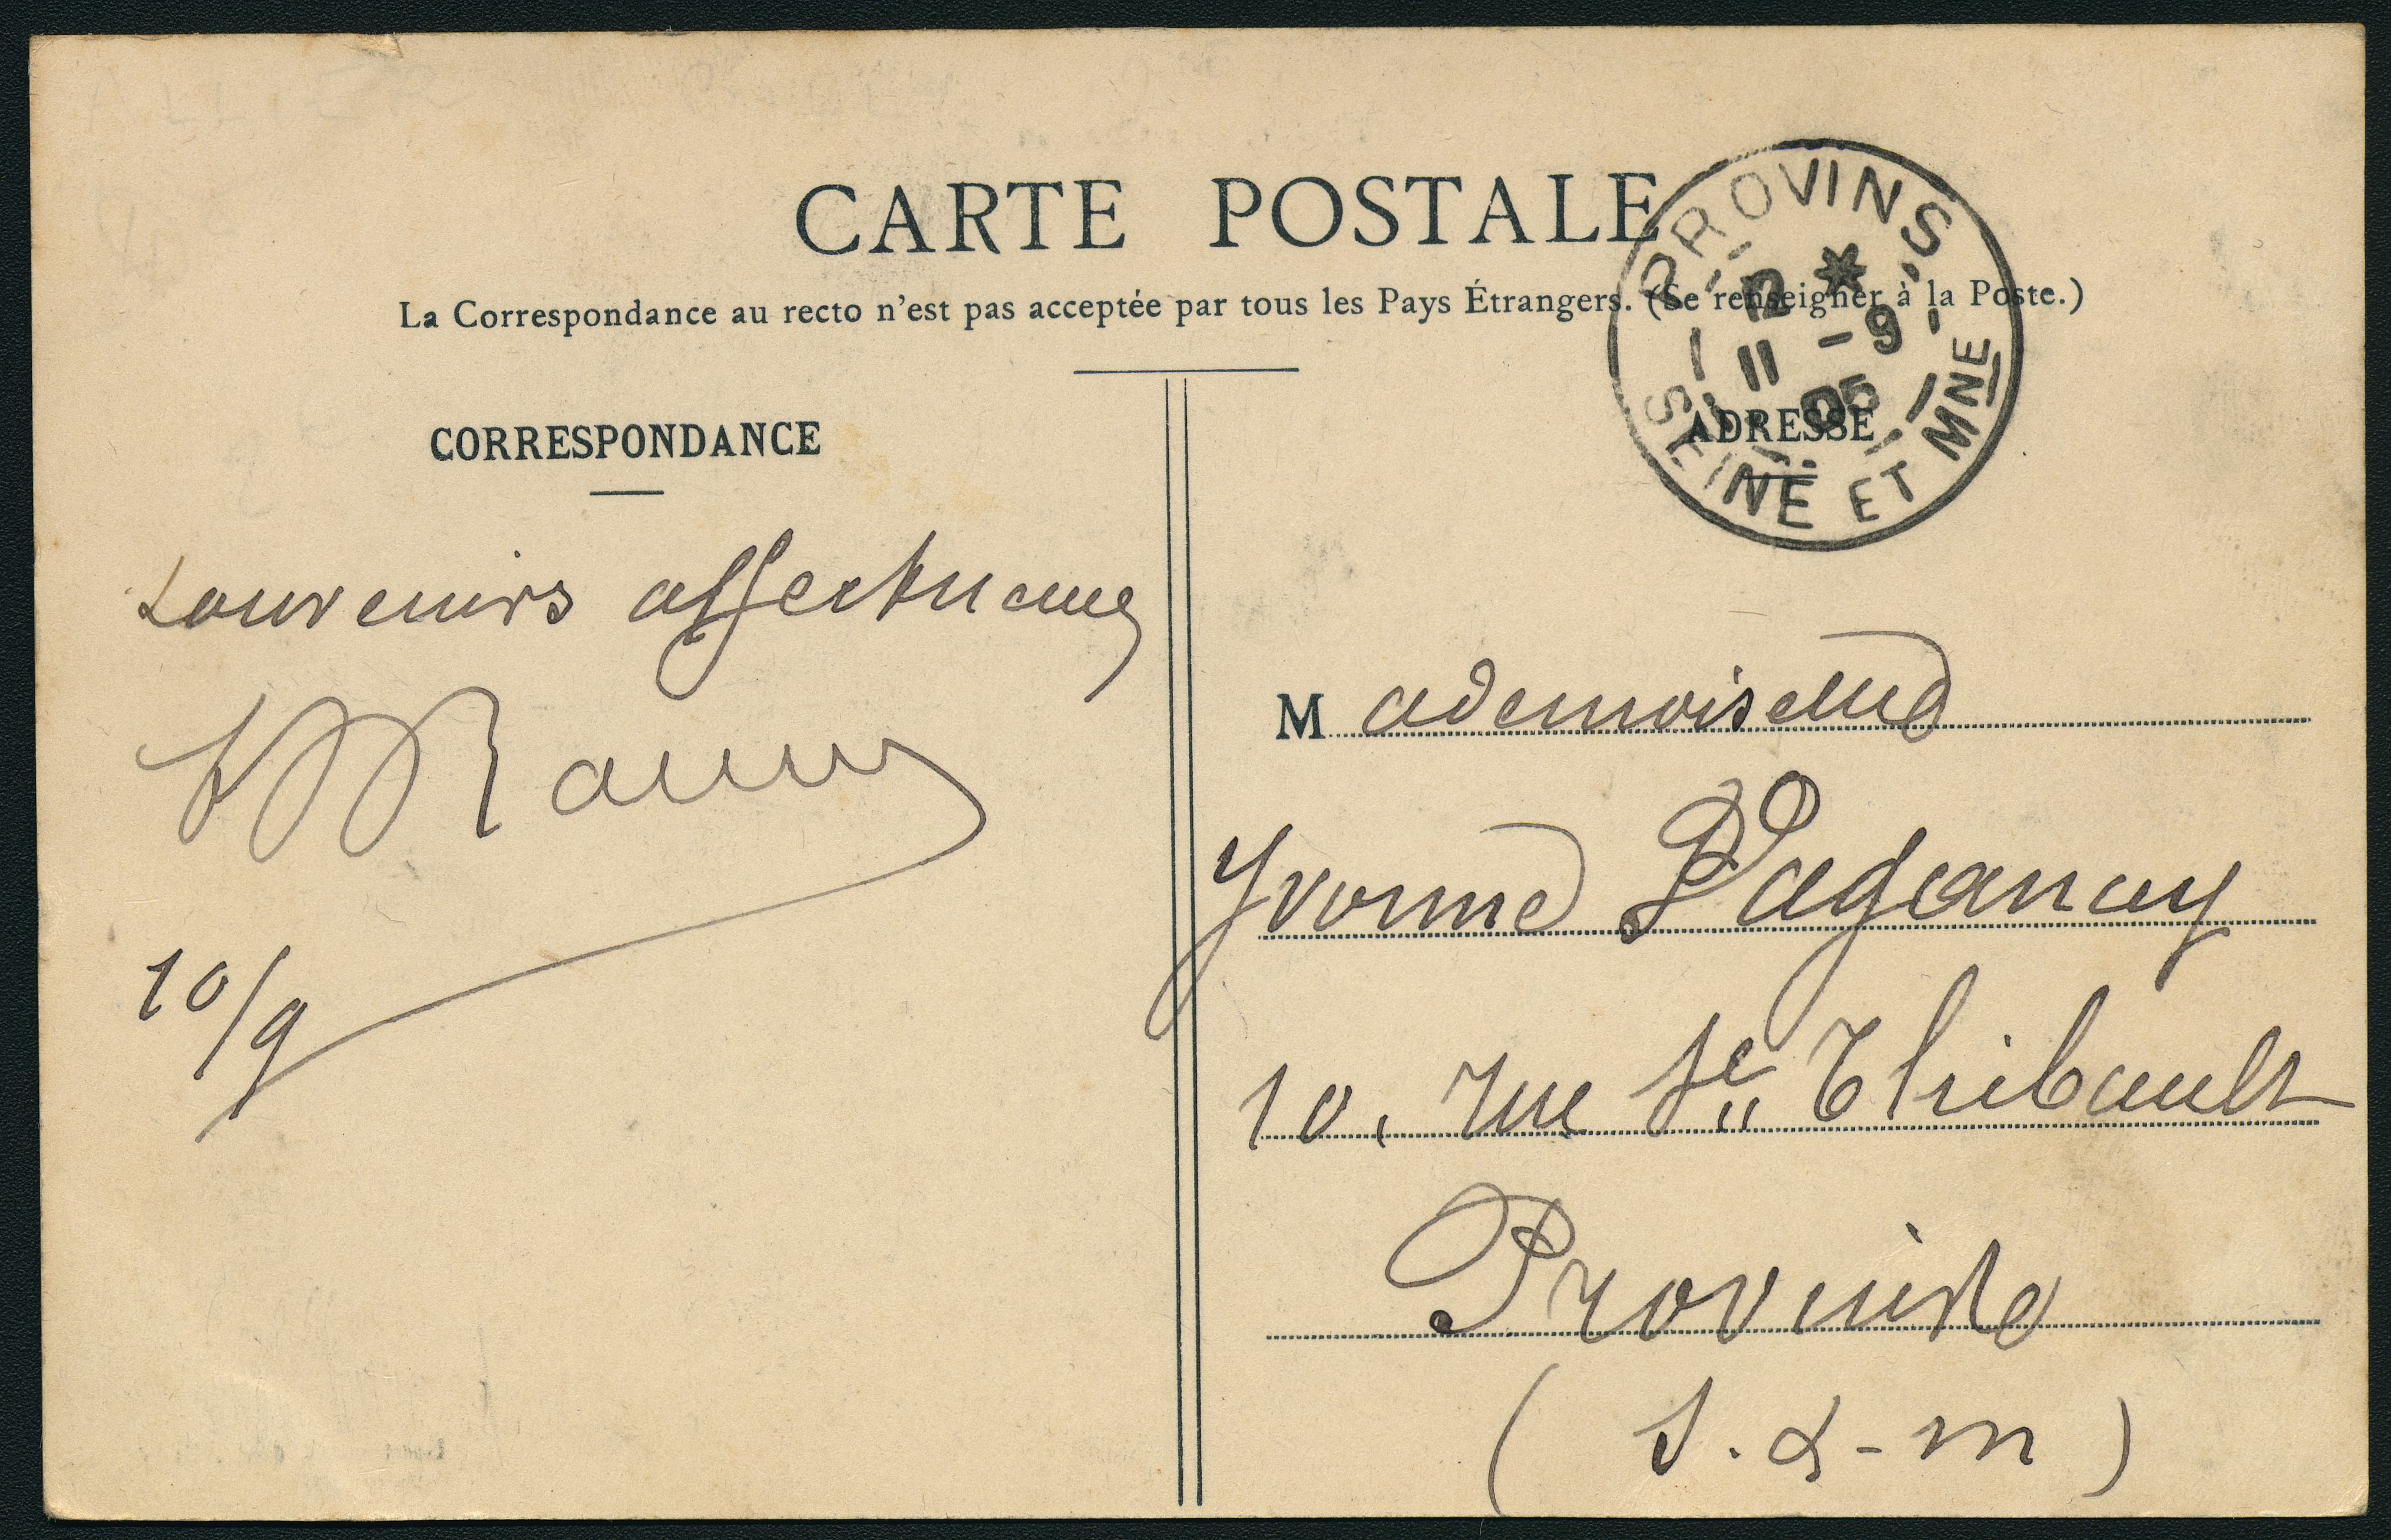 CARTE POSTALE
La Correspondance au recto n'est pas acceptée par tous les Pays Étrangers. (Se renseigner à la Poste.)
CORRESPONDANCE
Souvenirs affectueux
10/9
PROVINS
12 *
11 - 9
05
SEINE ET MNE
ADRESSE
Mademoiselle
Yvonne
10, rue Ste Thibault
Provins
(S.&-M)